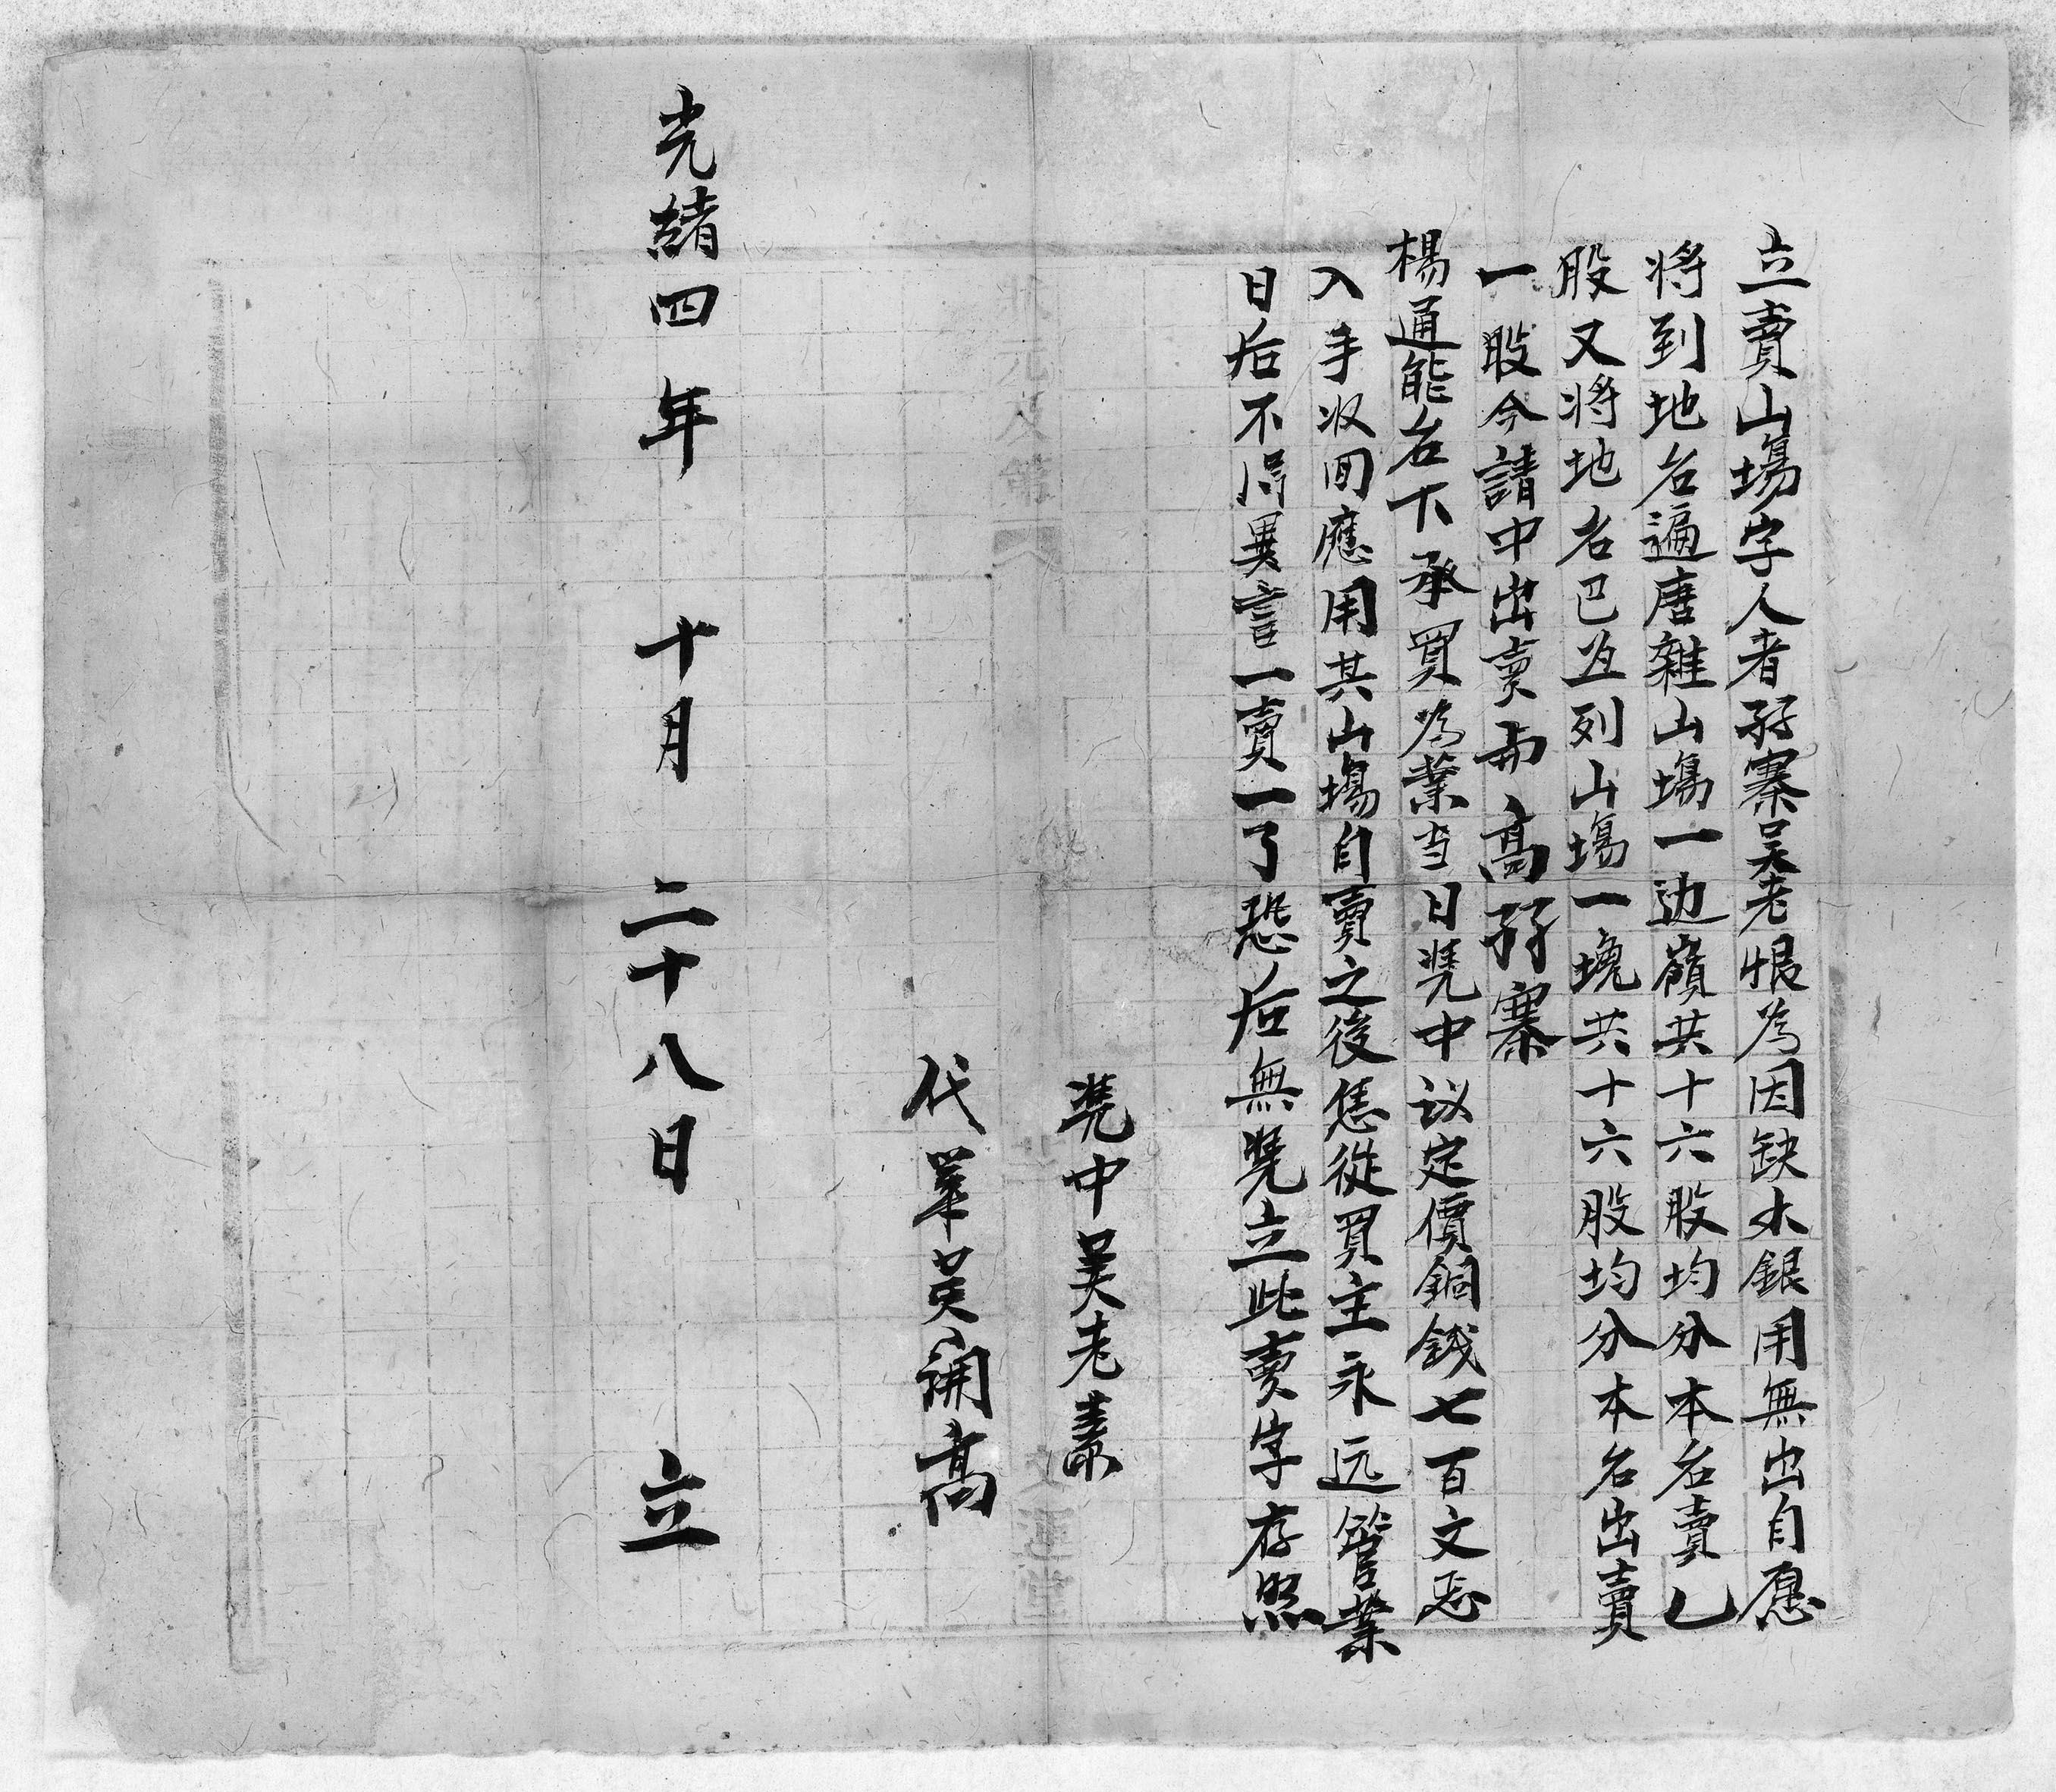 立賣山塲字人者孖寨吴老恨為因缺少銀用無出自愿
将到地名遍唐雜山塲一边嶺共十六股均分本名賣乙
股又将地名巴并列山塲一塊共十六股均分本名出賣
一股今請中出賣与高孖寨
楊通能名下承買為業当日凴中议定價銅錢七百文恁
入手收囘應用其山塲自賣之後恁從買主永远管業
日后不淂異言一賣一了恐后無凴立此賣字存照
凴中吴老素
代筆吴開高
光緒四年十月二十八日立